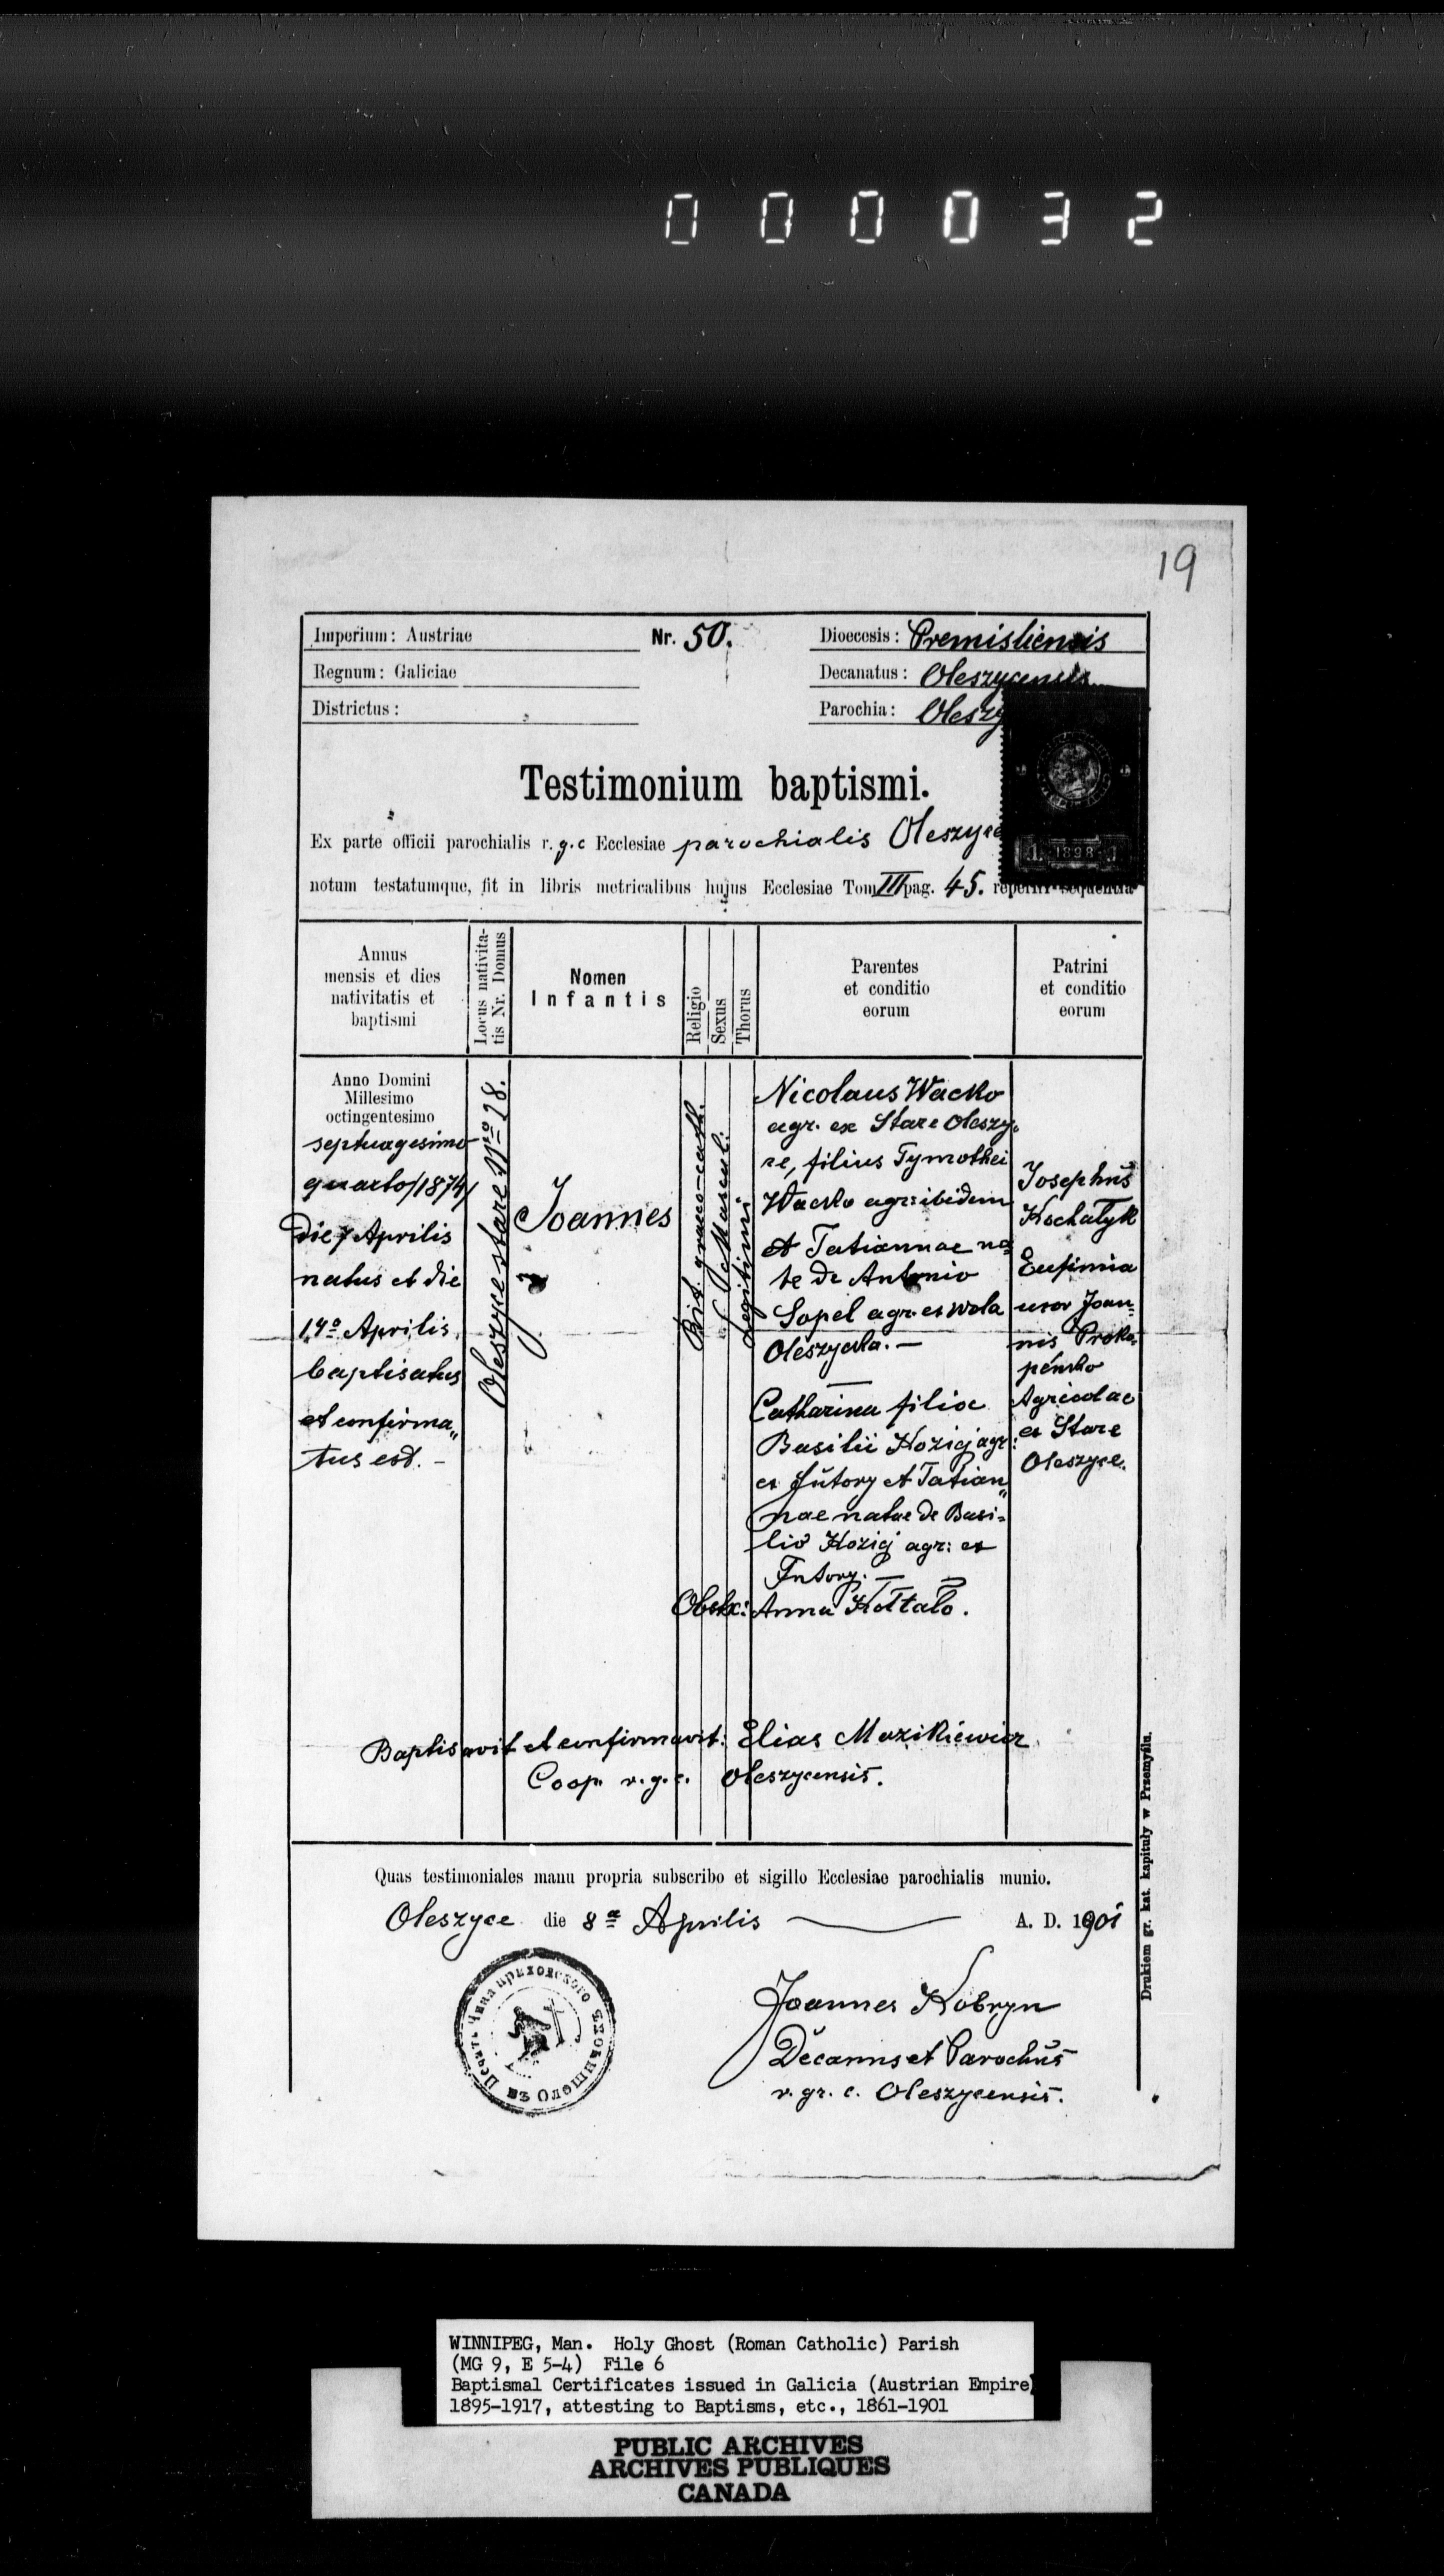 000032
19
Imperium: Austriae
Nr. 50.
Dioecesis: Premisliensis
Regnum: Galiciae
Decanatus: Oleszycensis
Districtus:
Parochia:
Testimonium baptismi.
Ex parte officii parochialis r. g. c Ecclesiae parochialis
notum testatumque, fit in libris metricalibus hujus Ecclesiae Tom III pag. 45. reperiri sequentia
Annus
mensis et dies
nativitatis et
baptismi
Locus nativita-
tis Nr. Domus
Nomen
Infantis
Religio
Sexus
Thorus
Parentes
et conditio
eorum
Patrini
et conditio
eorum
Anno Domini
Millesimo
octingentesimo
septuagesimo
quarto /1874/
Die 7 Aprilis
natus et die
14º Aprilis
baptisatus
et confirma„
tus est. -
Oleszyce stare Nro 28.
Joannes
Rit. graeco-cath.
Mascul:
Legitimi
Nicolaus Wacko
agr. ex Stare Oleszy-
ce, filius Tymothei
Wacko agr: ibidem
et Tatiannae na
te de Antonio
Sopel agr. ex Wola
Oleszycka. —
Catharina filia
Basilii Kozicj agr:
ex Futory et Tatian„
nae natae de Basi-
lio Kozicj agr: ex
Futory. —
Obstx: Anna
Josephus
Kochatyk
Eufimia
uxor Joan-
nis Proko-
penko
Agricolae
ex Stare
Oleszyce.
Baptisavit et confirmavit: Elias Mazikiewicz
Coop. r. g. c. Oleszycensis.
Quas testimoniales manu propria subscribo et sigillo Ecclesiae parochialis munio.
Oleszyce die 8a Aprilis A. D. 1901
Joannes Kobryn
Decanus et Parochus
r. gr. c. Oleszycensis.
Drukiem gr. kat. kapituły w Przemyślu.
1. 1898 1.
WINNIPEG, Man. Holy Ghost (Roman Catholic) Parish
(MG 9, E 5-4) File 6
Baptismal Certificates issued in Galicia (Austrian Empire)
1895-1917, attesting to Baptisms, etc., 1861-1901
PUBLIC ARCHIVES
ARCHIVES PUBLIQUES
CANADA